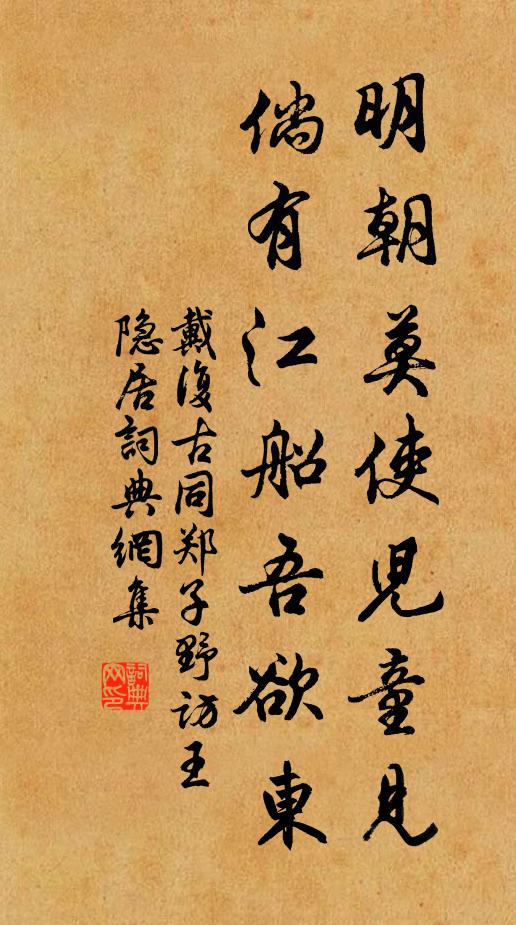 明朝莫使兒童見
倘有江船吾欲東
戴復古同郑子野访王
隐居詞典網集
詞典网印